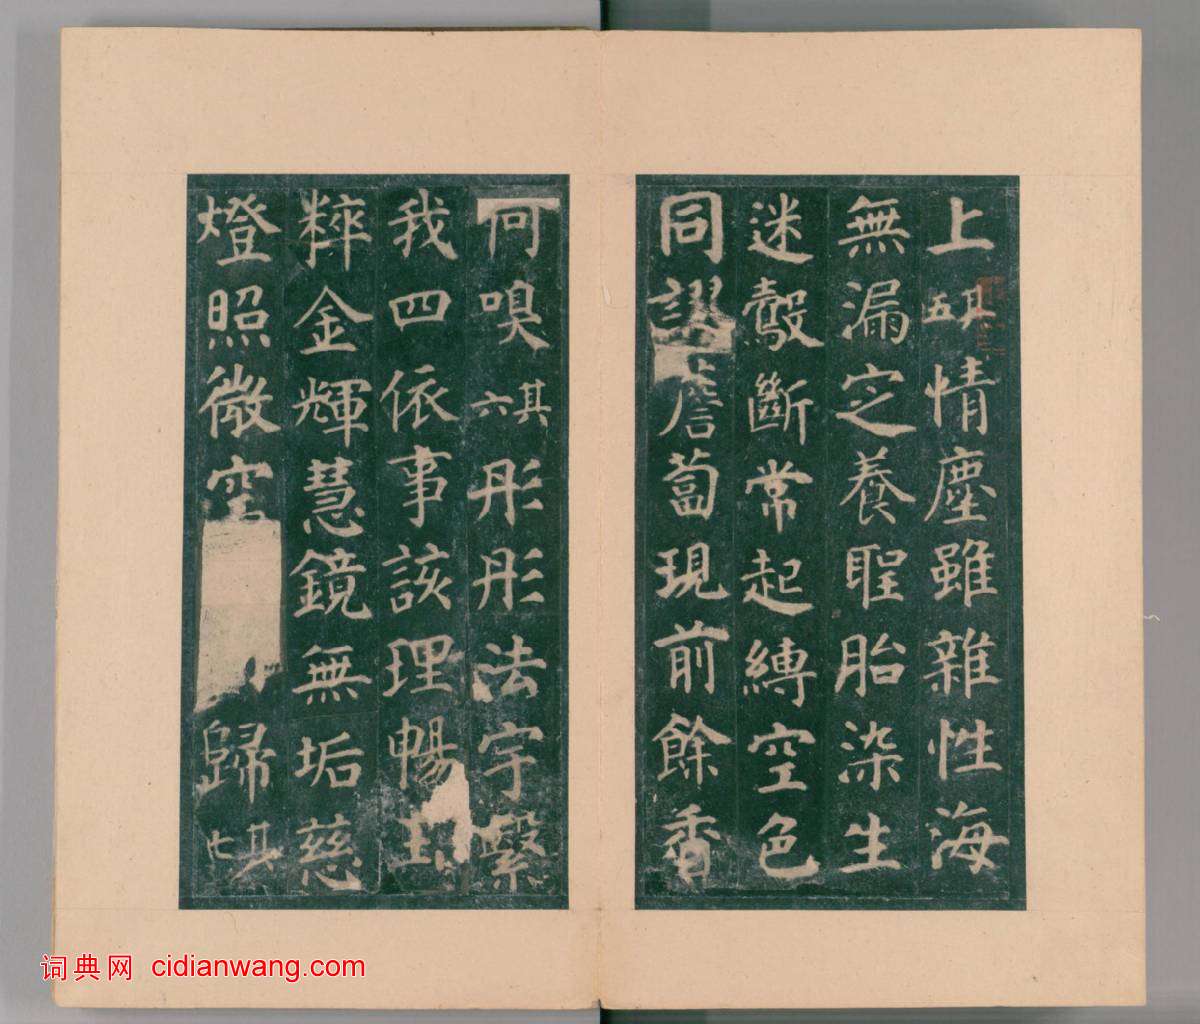 上其五情塵雖雜性海
無漏定養聖胎染生
迷鷇斷常起縛空色
同謬薝蔔現前餘香
何嗅其六彤彤法宇繄
我四依事該理暢玉
粹金輝慧鏡無垢慈
燈照微空歸其七
词典网 cidianwang.com